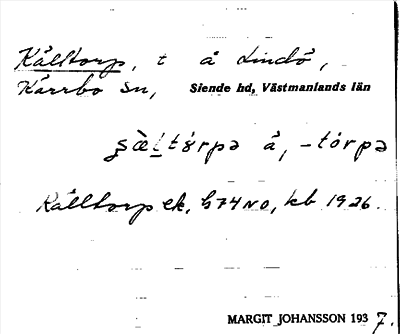 Kålltorp, t å Lindö,
Kärrbo sn, Siende hd, Västmanlands län
å, -tórpə
Kålltorp ek. G74NO, kb 1926.
MARGIT JOHANSSON 1937.